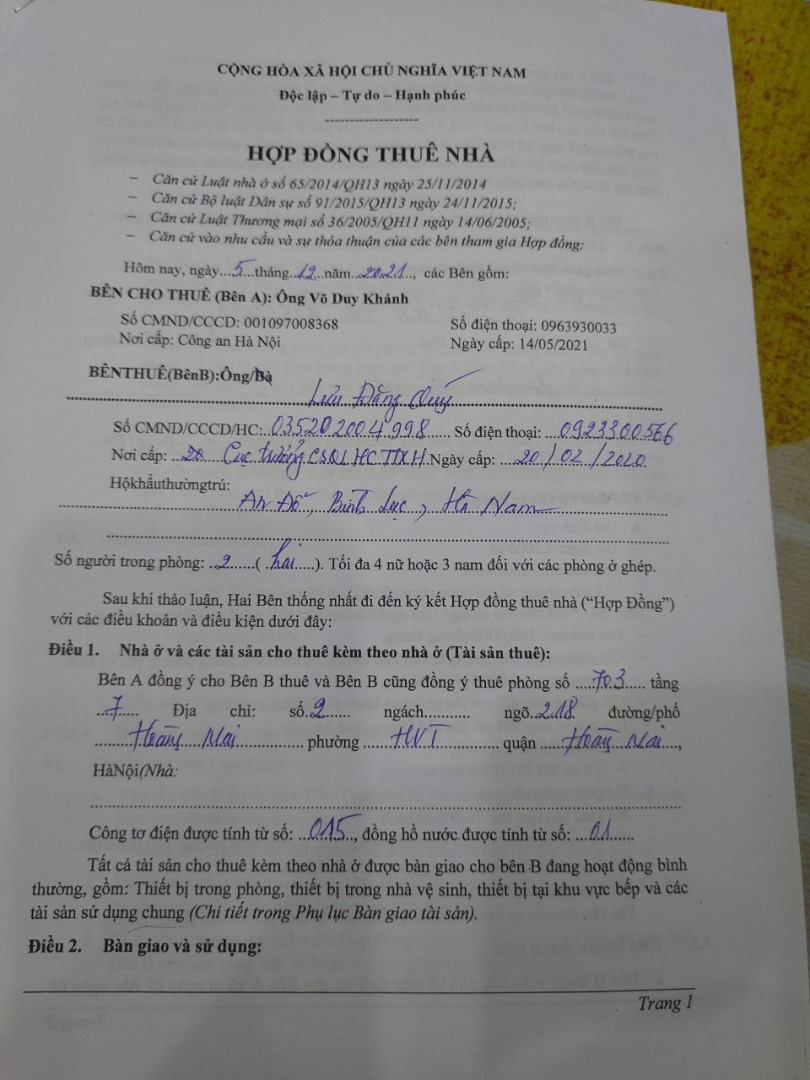 CỘNG HÒA XÃ HỘI CHỦ NGHĨA VIỆT NAM
Độc lập – Tự do – Hạnh phúc
--------------------
HỢP ĐỒNG THUÊ NHÀ
– Căn cứ Luật nhà ở số 65/2014/QH13 ngày 25/11/2014
– Căn cứ Bộ luật Dân sự số 91/2015/QH13 ngày 24/11/2015;
– Căn cứ Luật Thương mại số 36/2005/QH11 ngày 14/06/2005;
– Căn cứ vào nhu cầu và sự thỏa thuận của các bên tham gia Hợp đồng;
Hôm nay, ngày...5...tháng...12...năm...2021..., các Bên gồm:
BÊN CHO THUÊ (Bên A): Ông Võ Duy Khánh
Số CMND/CCCD: 001097008368 Số điện thoại: 0963930033
Nơi cấp: Công an Hà Nội Ngày cấp: 14/05/2021
BÊNTHUÊ(BênB):Ông/Bà
Lưu Đăng Quý
Số CMND/CCCD/HC:..035202004998...... Số điện thoại: ...0923300566
Nơi cấp: ... Cục trưởng CSQLHC TTXH Ngày cấp: ...20/02/2020
Hộkhẩuthườngtrú:
An Đổ, Bình Lục, Hà Nam
Số người trong phòng: ...2......( .hai.....). Tối đa 4 nữ hoặc 3 nam đối với các phòng ở ghép.
Sau khi thảo luận, Hai Bên thống nhất đi đến ký kết Hợp đồng thuê nhà (“Hợp Đồng”)
với các điều khoản và điều kiện dưới đây:
Điều 1. Nhà ở và các tài sản cho thuê kèm theo nhà ở (Tài sản thuê):
Bên A đồng ý cho Bên B thuê và Bên B cũng đồng ý thuê phòng số ....703..... tầng
...7..... Địa chỉ: số.2....... ngách........... ngõ.218. đường/phố
........Hoàng Mai................ phường .......HVT............... quận .....Hoàng Mai....,
HàNội(Nhà:
Công tơ điện được tính từ số: ...015......, đồng hồ nước được tính từ số: ...01.......
Tất cả tài sản cho thuê kèm theo nhà ở được bàn giao cho bên B đang hoạt động bình
thường, gồm: Thiết bị trong phòng, thiết bị trong nhà vệ sinh, thiết bị tại khu vực bếp và các
tài sản sử dụng chung (Chi tiết trong Phụ lục Bàn giao tài sản).
Điều 2. Bàn giao và sử dụng:
Trang 1